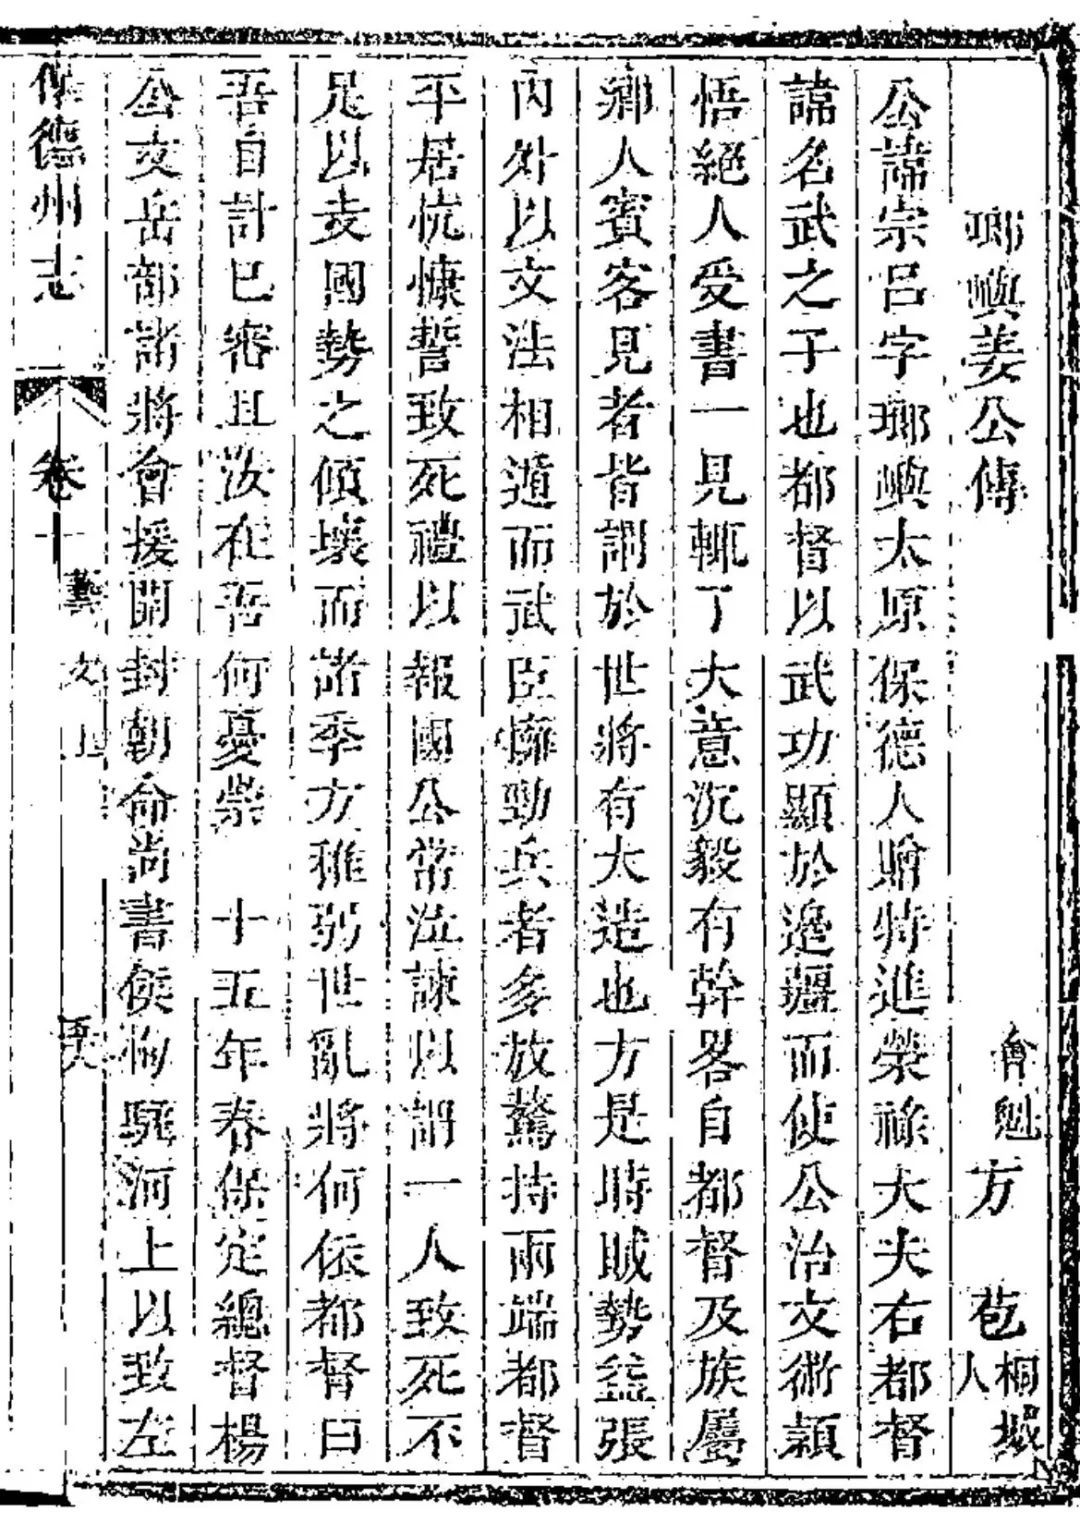 瑯嶼姜公傳
會魁方苞桐城人
公諱宗呂字瑯嶼太原保德人贈特進榮祿大夫右都督
諱名武之子也都督以武功顯於邊疆而使公治文術穎
悟絕人受書一見輒了大意沉毅有幹畧自都督及族屬
鄉人賓客見者皆謂於世將有大造也方是時賊勢益張
內外以文法相遁而武臣擁勁兵者多放驁持兩端都督
平居忼慷誓致死禮以報國公常泣諫以謂一人致死不
足以支國勢之傾壞而諸季方稚弱世亂將何依都督曰
吾自計已審且汝在吾何憂崇 十五年春保定總督楊
公文岳部諸將會援開封朝命尚書侯恂駐河上以致左
保德州志 卷十 藝文上